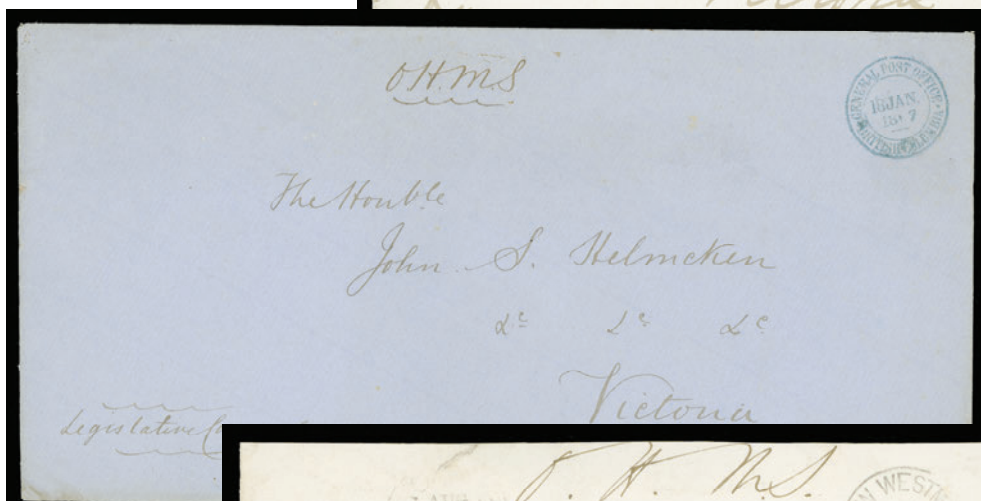 O.H.M.S
GENERAL POST OFFICE
18 JAN.
BRITISH COLUMBIA
The Honble
John S. Helmcken
&c &c &c
Victoria
Legislative
O. H. M. S.